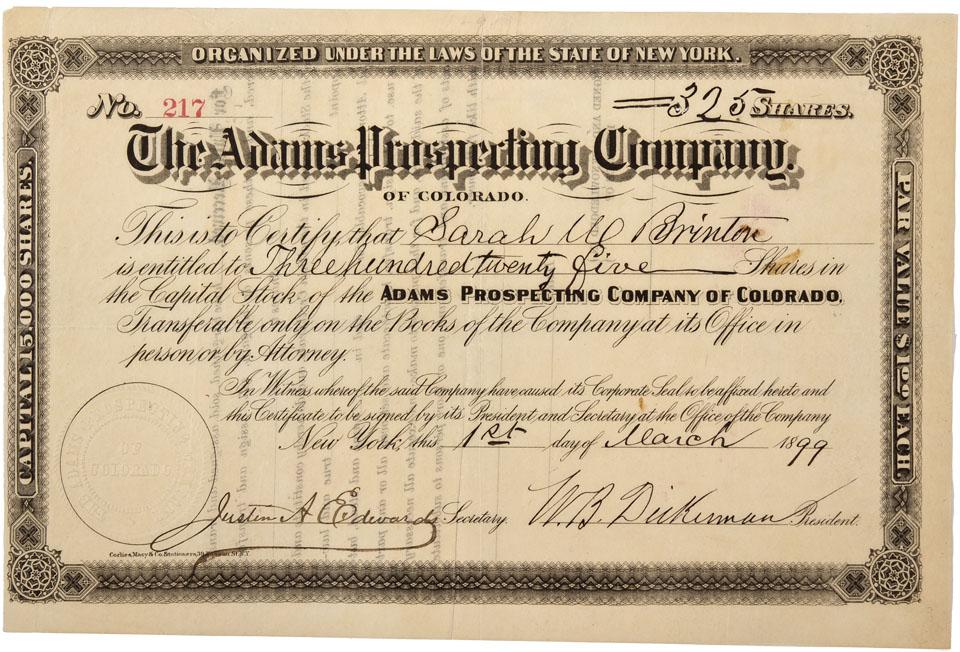 ORGANIZED UNDER THE LAWS OF THE STATE OF NEW YORK.
No. 217
325 SHARES.
The Adams Prospecting Company.
OF COLORADO.
This is to Certify, that Sarah W Brinton
is entitled to Three hundred twenty five Shares in
the Capital Stock of the ADAMS PROSPECTING COMPANY OF COLORADO,
Transferable only on the Books of the Company at its Office in
person or by Attorney.
In Witness whereof the said Company have caused its Corporate Seal to be affixed hereto and
this Certificate to be signed by its President and Secretary at the Office of the Company
New York, this 1st day of March 1899
Justin A Edwards Secretary.
W. B. Dickerman President.
Corlies, Macy & Co. Stationers, N.Y.
CAPITAL 15,000 SHARES.
PAR VALUE $100 EACH.
COLORADO